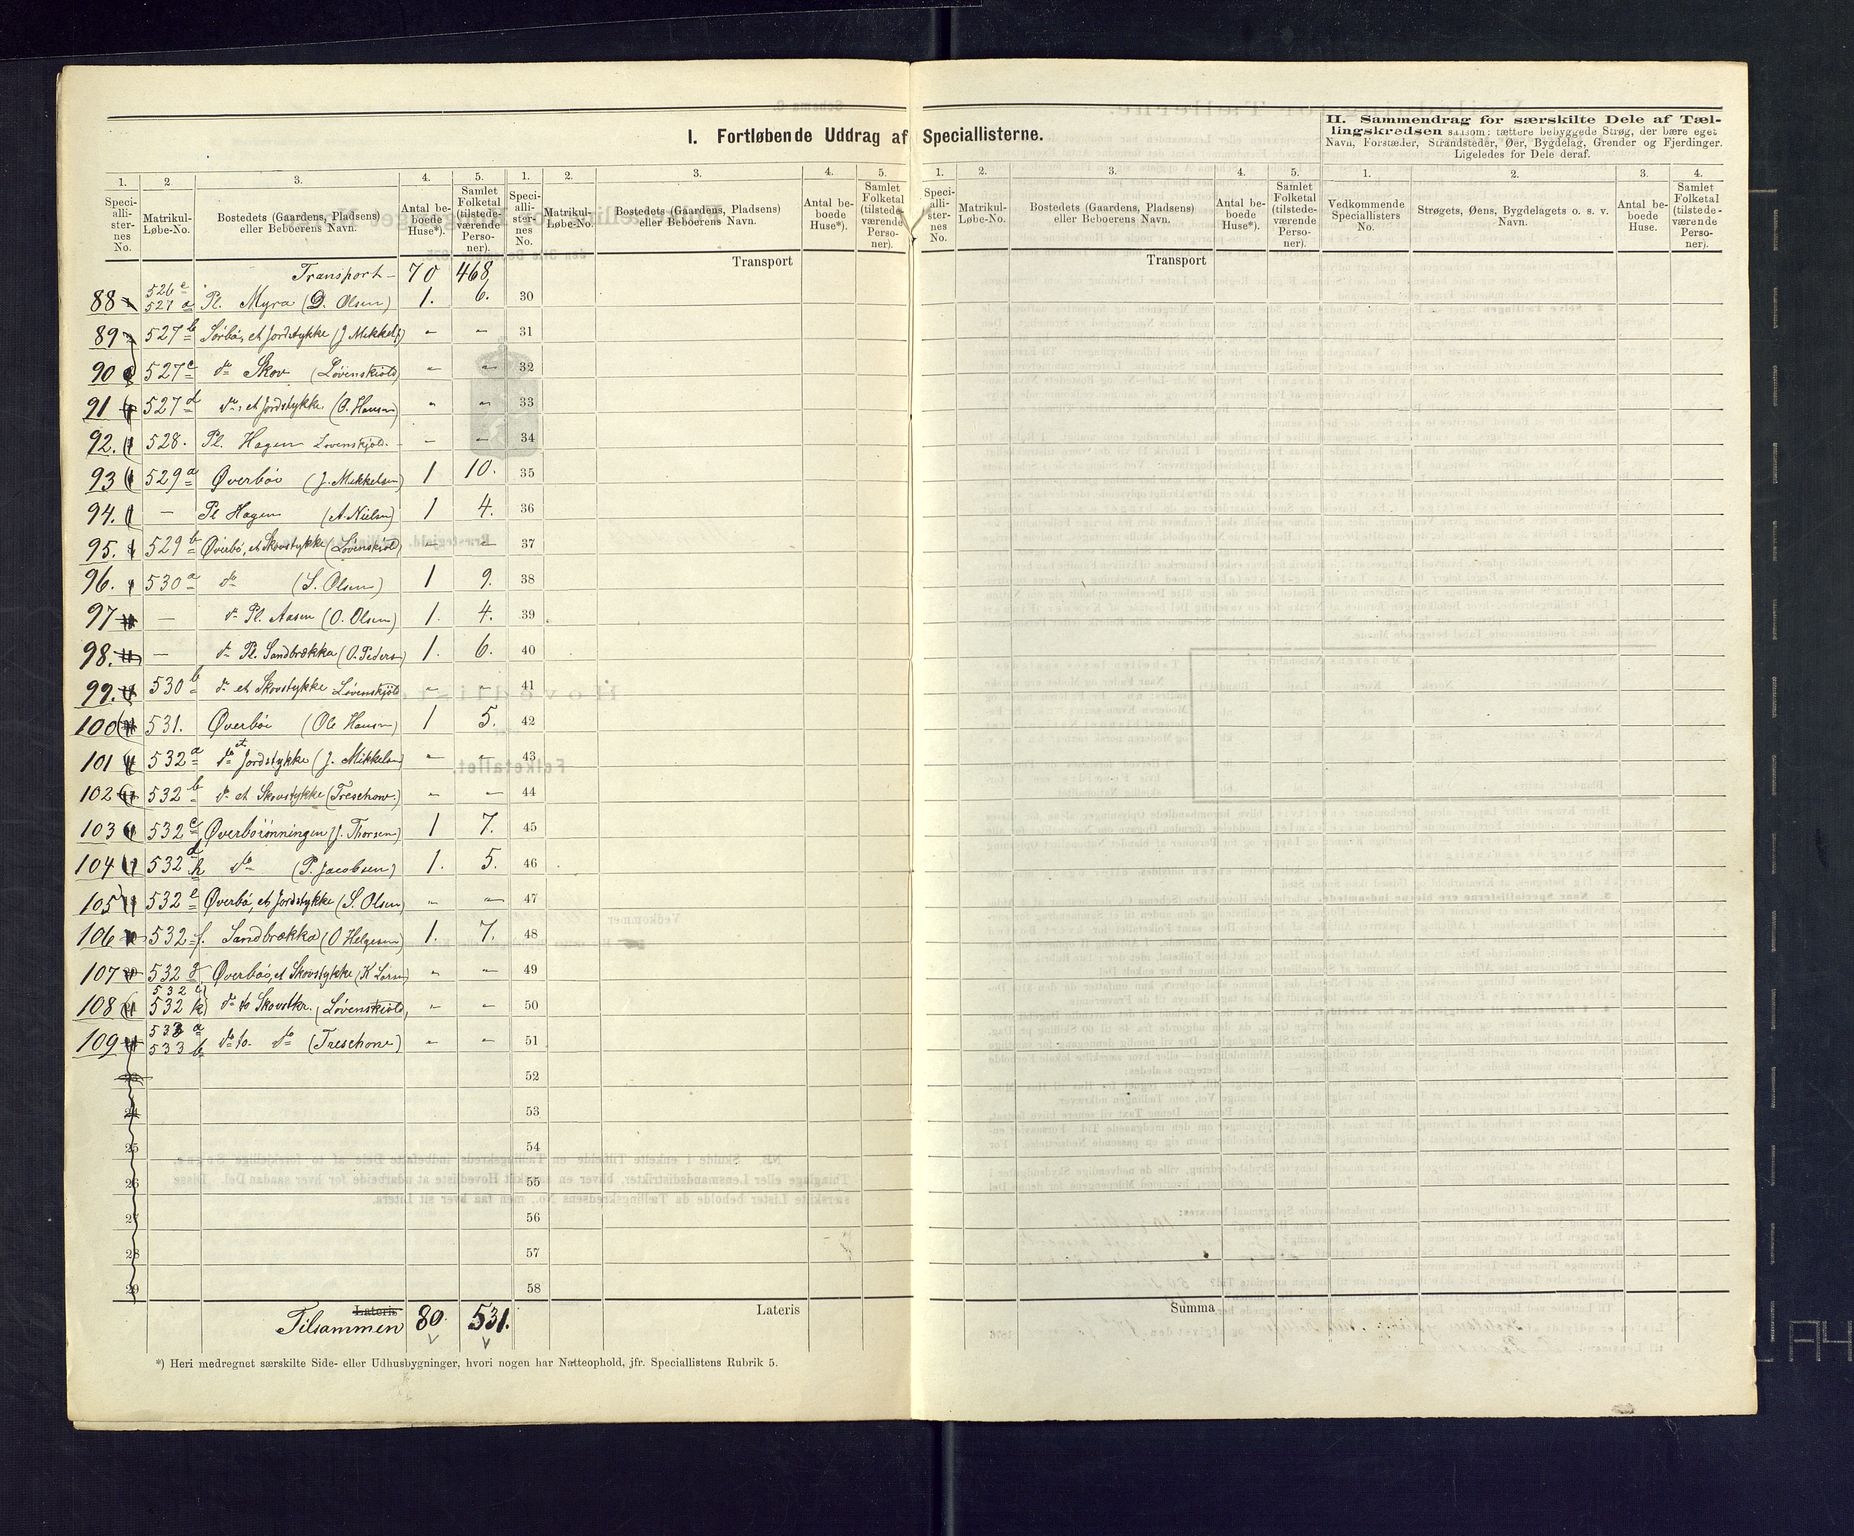 I. Fortløbende Uddrag af Speciallisterne.
II. Sammendrag for særskilte Dele af Tæl-
lingskredsen saasom: tættere bebyggede Strøg, der bære eget
Navn, Forstæder, Strandsteder, Øer, Bygdelag, Grender og Fjerdinger.
Ligeledes for Dele deraf.
1. 2 3. 4. 5. 1. 2. 3. 4. 5. 1. 2. 3. 4. 5. 1. 2. 3. 4.
Speciallisternes No. Matrikul-Løbe-No. Bostedets (Gaardens, Pladsens) eller Beboerens Navn. Antal beboede Huse*). Samlet Folketal (tilstedeværende Personer).
Speciallisternes No. Matrikul-Løbe-No. Bostedets (Gaardens, Pladsens) eller Beboerens Navn. Antal beboede Huse*). Samlet Folketal (tilstedeværende Personer).
Speciallisternes No. Matrikul-Løbe-No. Bostedets (Gaardens, Pladsens) eller Beboerens Navn. Antal beboede Huse*). Samlet Folketal (tilstedeværende Personer).
Vedkommende Speciallisters No. Strøgets, Øens, Bygdelagets o. s. v. Navn. Antal beboede Huse. Samlet Folketal (tilstedeværende Personer).
Transport - 70 468 Transport Transport
88 526 c 527 a Pl. Myra (D. Olsen) 1. 6. 30
89 527 b Sørbø, et Jordstykke (J. Mikkels) - - 31
90 527 c do Skov (Løvenskiold) - - 32
91 527 d do, et Jordstykke (O. Hansen) - - 33
92. 528. Pl. Hagen Løvenskjold. - - 34
93 529 a Øverbøi (J. Mikkelsen) 1 10. 35
94. - Pl Hagen (A. Nielsen) 1 4. 36
95. 529 b Øverbø, et Skovstykke (Løvenskiold) - - 37
96. 530 a do (S. Olsen) 1 9. 38
97 - do Pl. Aasen (O. Olsen) 1. 4. 39
98. - do Pl. Sandbrækka (O. Peders) 1. 6. 40
99. 530 b do et Skovstykke Løvenskjold - - 41
100 531. Øverbøi (Ole Hansen) 1 5. 42
101 532 a do et Jordstykke (J. Mikkelsen) - - 43
102 532 b do et Skovstykke (Treschow.) - - 44
103 532 c Øverbørønningen (J. Thorsen) 1 7. 45
104 532 d h do (P. Jacobsen) 1. 5. 46
105 532 e Øverbø, et Jordstykke (S. Olsen) - - 47
106 532 f. Sandbrækka (O Helgesen) 1. 7. 48
107 532 g Øverbøs, et Skovstykke (K Larsen) - - 49
108 532 i 532 k do to Skovstkr. (Løvenskiold) - - 50
109 533 a 533 b do to do (Treschow) - - 51
52
24 53
25 54
26 55
27 56
28 57
29 58
Lateris Lateris Summa
Tilsammen 80. 531.
*) Heri medregnet særskilte Side- eller Udhusbygninger, hvori nogen har Natteophold, jfr. Speciallistens Rubrik 5.
A4